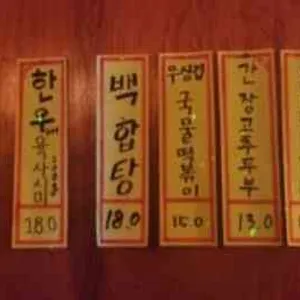 한우육사시미
18.0
백합탕
18.0
우삼겹
국물떡볶이
15.0
간장고추두부
13.0